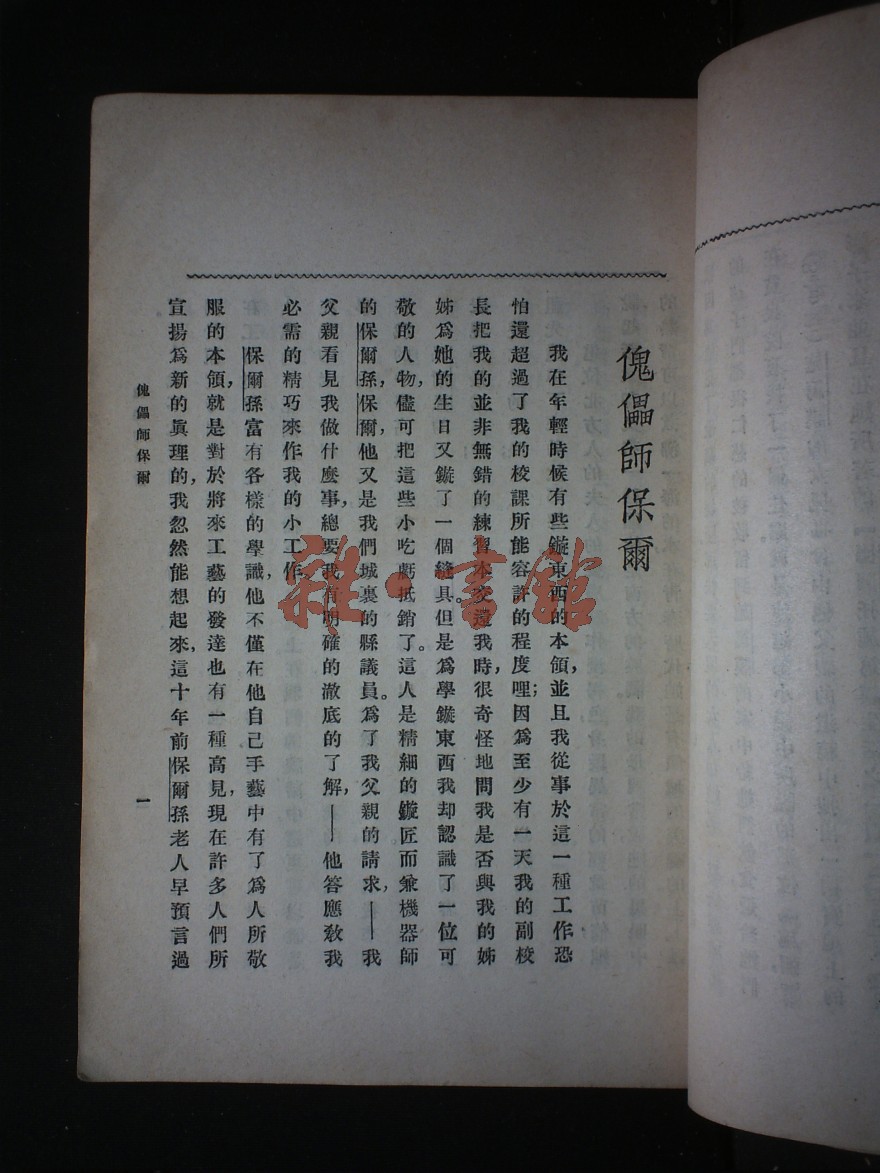 傀儡師保爾
我在年輕時候有些鏇東西的本領,並且我從事於這一種工作恐
怕還超過了我的校課所能容許的程度哩;因爲至少有一天我的副校
長把我的並非無錯的練習本交還我時,很奇怪地問我是否與我的姊
姊爲她的生日又鏇了一個縫具。但是爲學鏇東西我却認識了一位可
敬的人物,儘可把這些小吃虧抵銷了。這人是精細的鏇匠而兼機器師
的保爾孫,保爾,他又是我們城裏的縣議員。爲了我父親的請求,——我
父親看見我做什麼事,總要我有明確的澈底的了解,——他答應敎我
必需的精巧來作我的小工作。
保爾孫富有各樣的學識,他不僅在他自己手藝中有了爲人所敬
服的本領,就是對於將來工藝的發達也有一種高見,現在許多人們所
宣揚爲新的眞理的,我忽然能想起來,這十年前保爾孫老人早預言過
傀儡師保爾
一
雜·書館